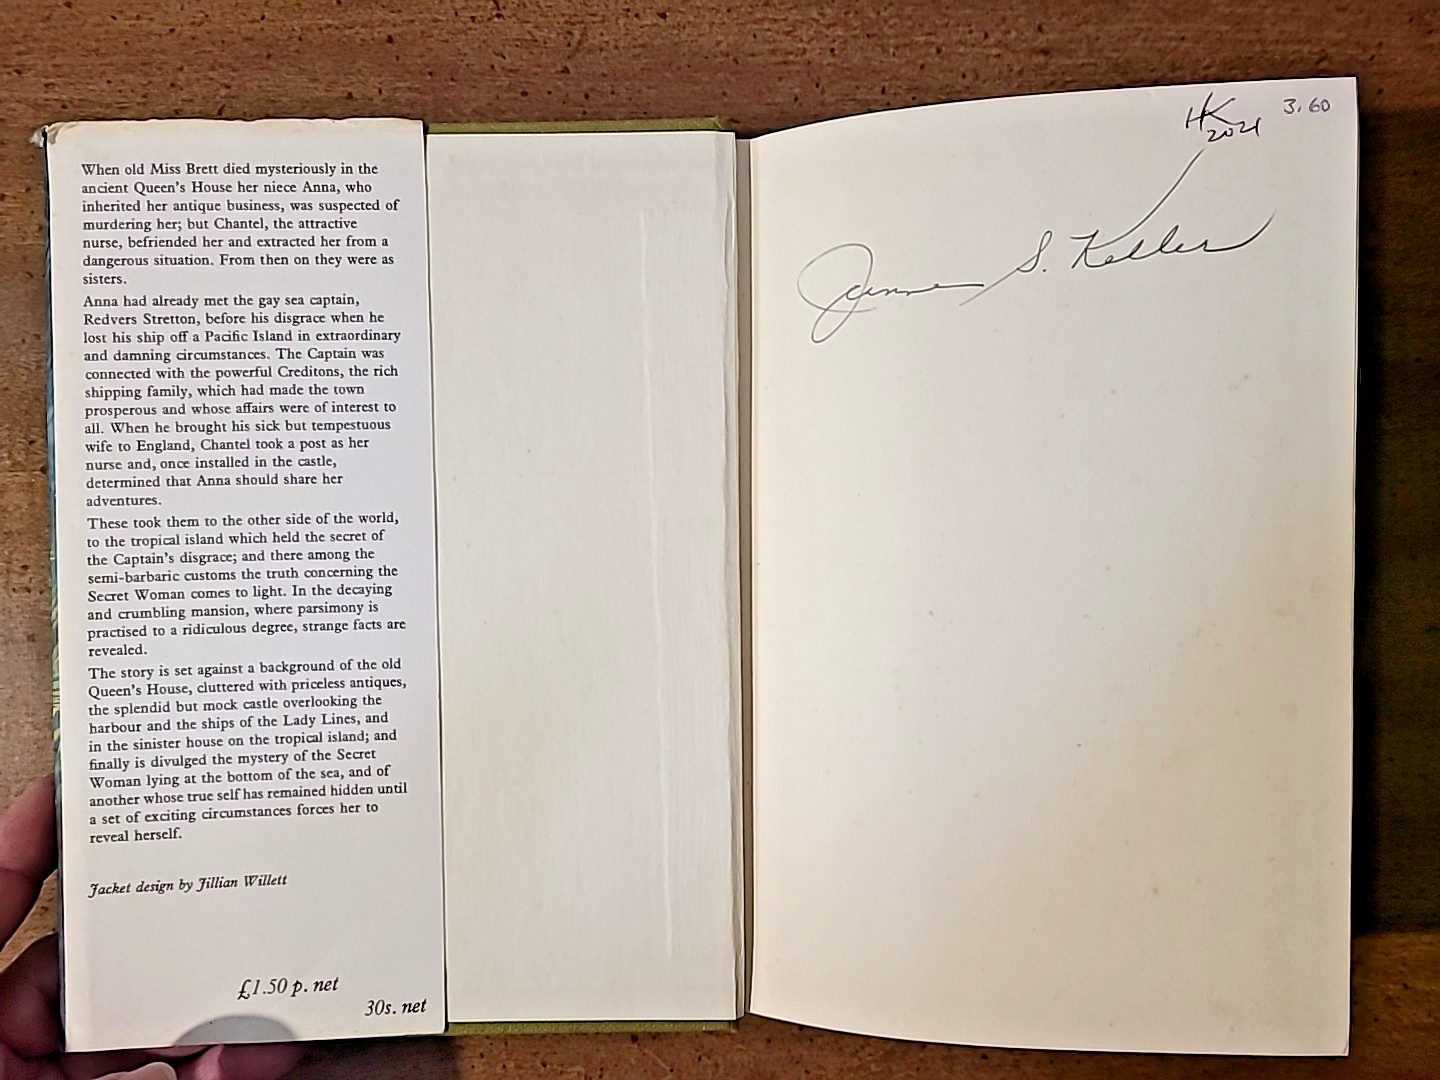 When old Miss Brett died mysteriously in the
ancient Queen's House her niece Anna, who
inherited her antique business, was suspected of
murdering her; but Chantel, the attractive
nurse, befriended her and extracted her from a
dangerous situation. From then on they were as
sisters.
Anna had already met the gay sea captain,
Redvers Stretton, before his disgrace when he
lost his ship off a Pacific Island in extraordinary
and damning circumstances. The Captain was
connected with the powerful Creditons, the rich
shipping family, which had made the town
prosperous and whose affairs were of interest to
all. When he brought his sick but tempestuous
wife to England, Chantel took a post as her
nurse and, once installed in the castle,
determined that Anna should share her
adventures.
These took them to the other side of the world,
to the tropical island which held the secret of
the Captain's disgrace; and there among the
semi-barbaric customs the truth concerning the
Secret Woman comes to light. In the decaying
and crumbling mansion, where parsimony is
practised to a ridiculous degree, strange facts are
revealed.
The story is set against a background of the old
Queen's House, cluttered with priceless antiques,
the splendid but mock castle overlooking the
harbour and the ships of the Lady Lines, and
in the sinister house on the tropical island; and
finally is divulged the mystery of the Secret
Woman lying at the bottom of the sea, and of
another whose true self has remained hidden until
a set of exciting circumstances forces her to
reveal herself.
Jacket design by Jillian Willett
£1.50 p. net
30s. net
HK 3.60
2021
S. Keller